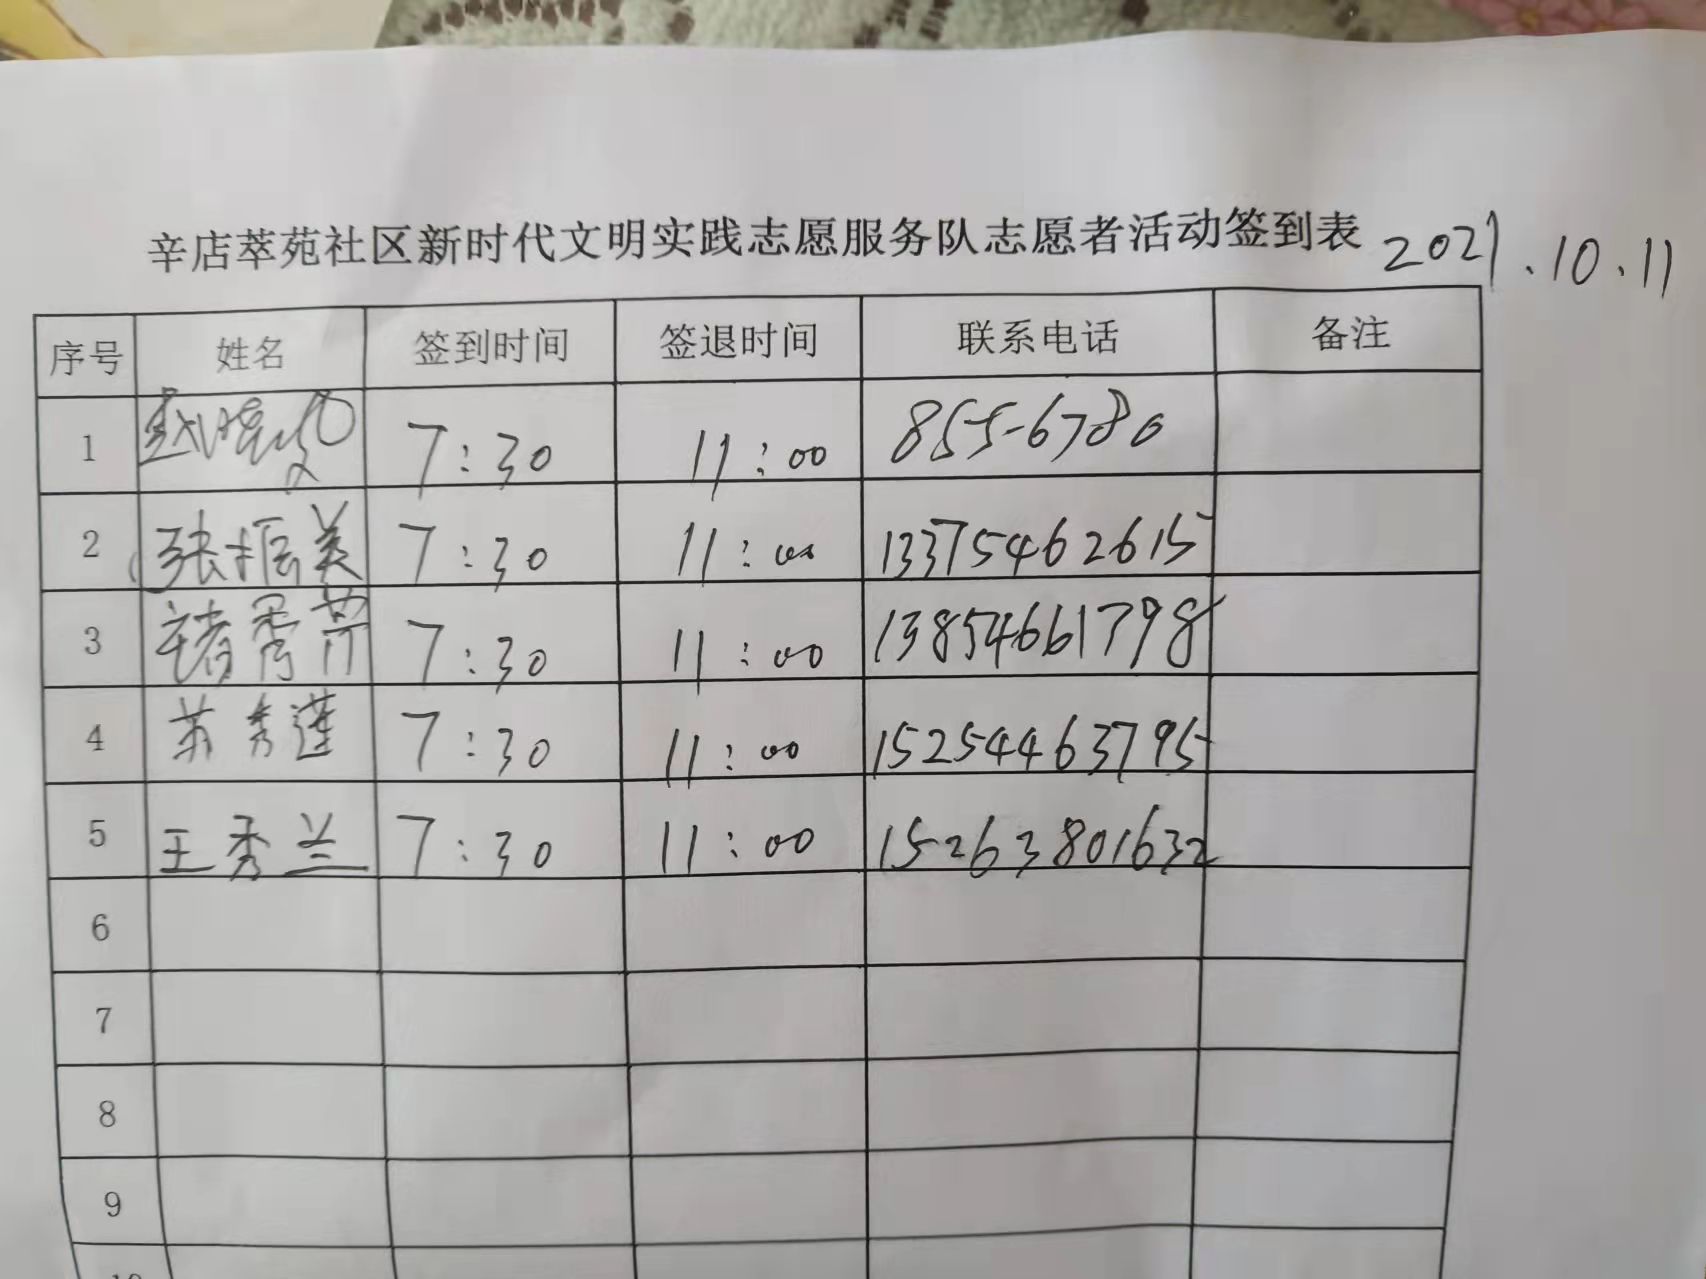 辛店萃苑社区新时代文明实践志愿服务队志愿者活动签到表 2021.10.11
序号 姓名 签到时间 签退时间 联系电话 备注
1 赵 7:30 11:00 855-6780
2 张振美 7:30 11:00 13375462615
3 7:30 11:00 13854661798
4 苏秀莲 7:30 11:00 15254463795
5 王秀兰 7:30 11:00 15263801632
6
7
8
9